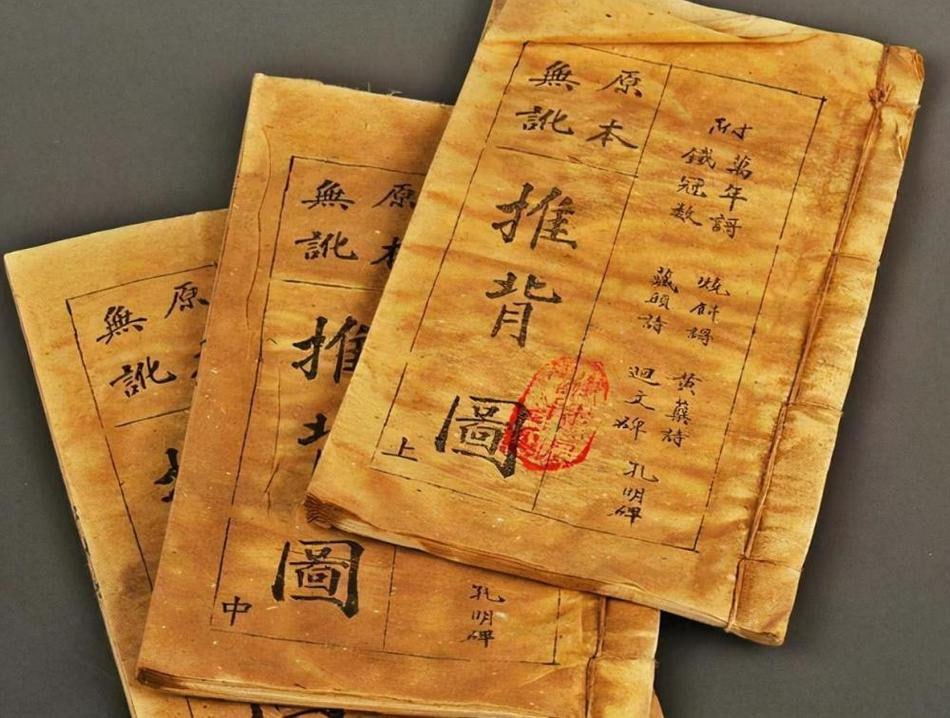 附
萬年謌
鐵冠数
燒餅謌
藏頭詩
黃蘗詩
迴文碑
孔明碑
原本
無訛
推背圖
上
孔明碑
原本
無訛
推背圖
中
原
無訛